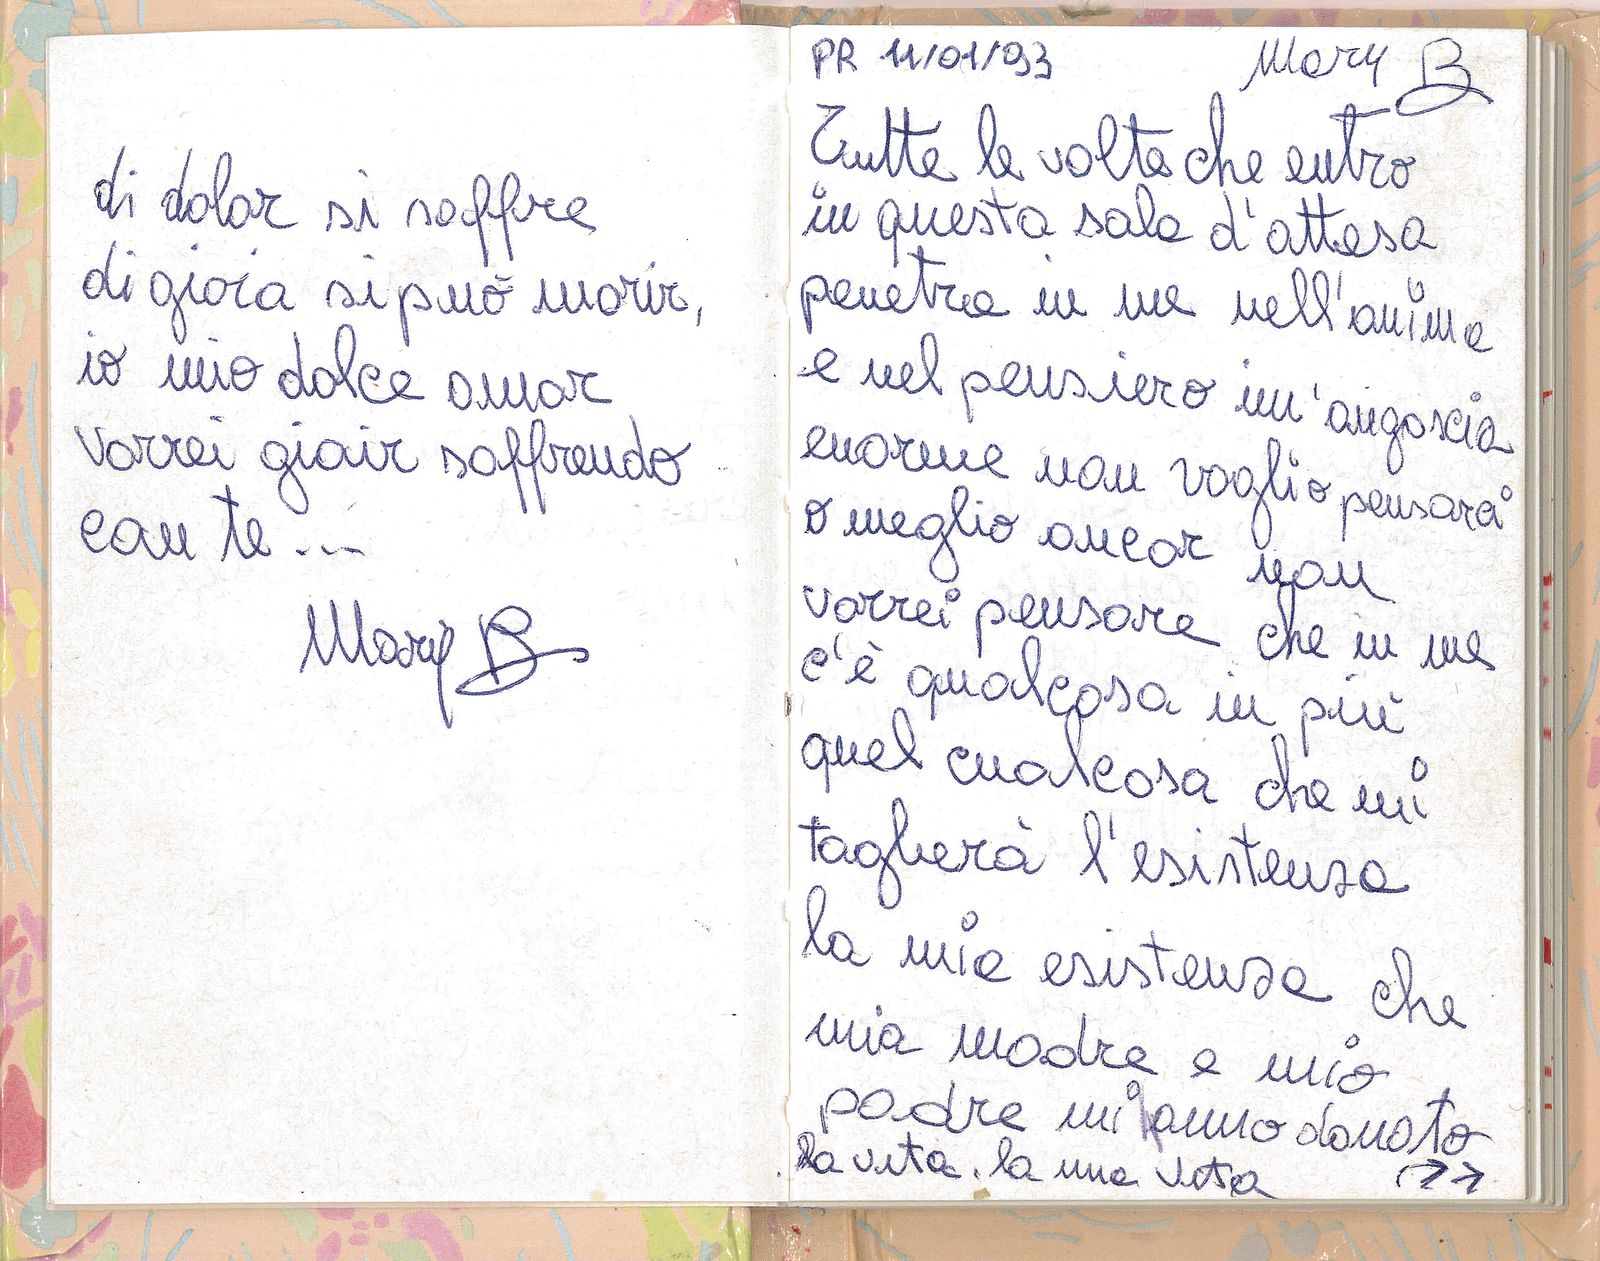 di dolor si soffre
di gioia si può morir,
io mio dolce amor
vorrei gioir soffrendo
con te ...
Mary B
PR 11/01/93 Mary B
Tutte le volte che entro
in questa sala d'attesa
penetra in me nell'anima
e nel pensiero un'angoscia
enorme non voglio pensarci
o meglio ancor non
vorrei pensare che in me
c'è qualcosa in più
quel cualcosa che mi
taglierà l'esistenza
la mia esistenza che
mia madre e mio
padre mi hanno donato
la vita. la mia vita →→